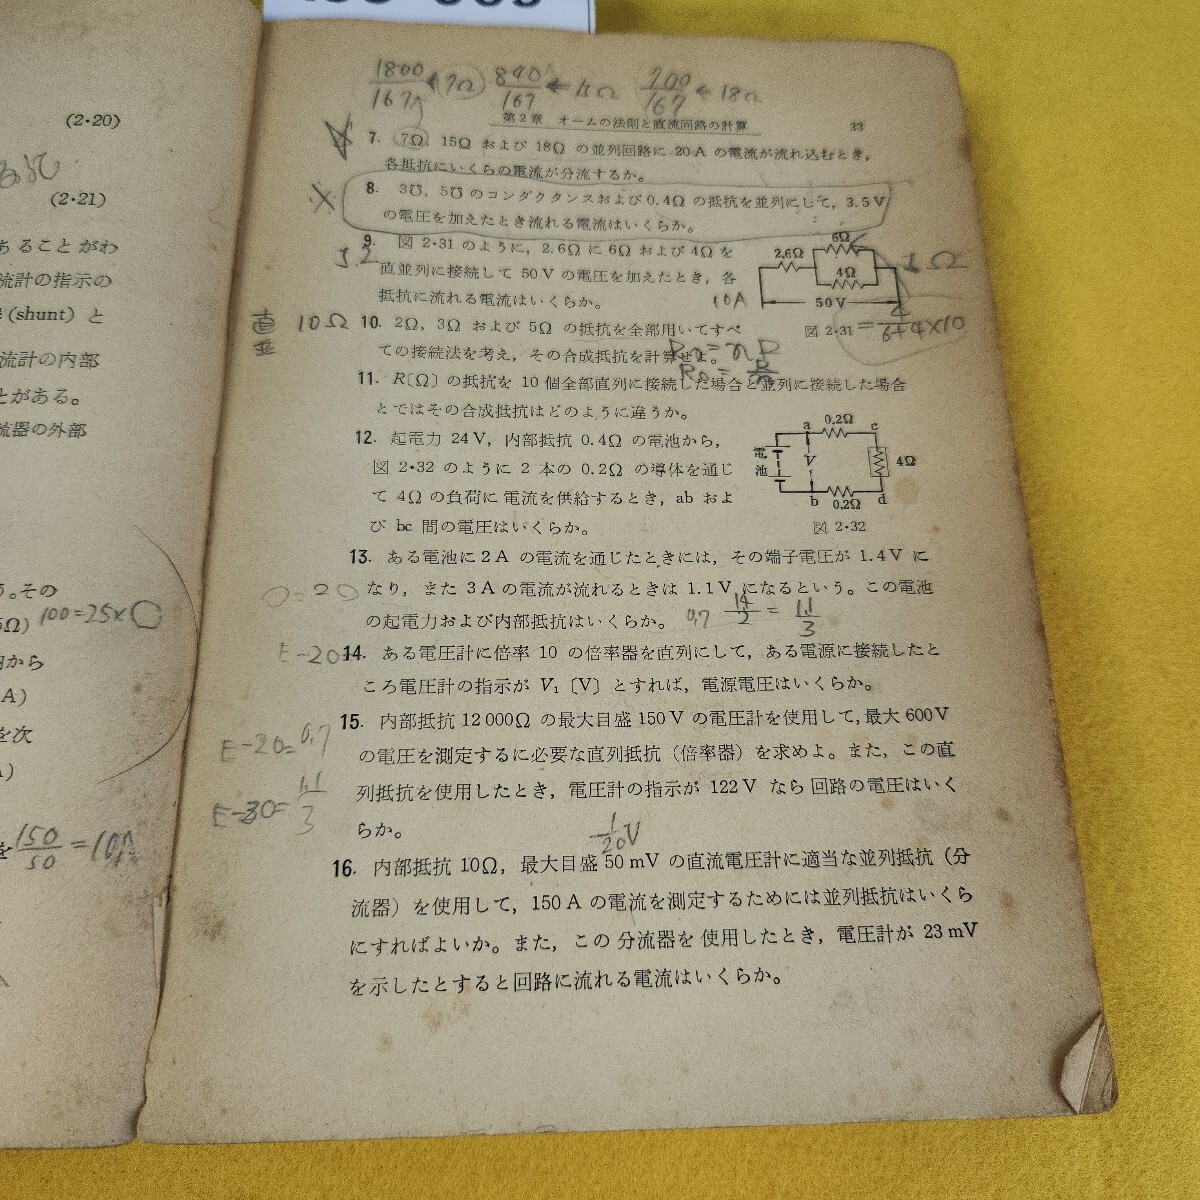 (2・20)
(2・21)
あることがわ
流計の指示の
(shunt) と
流計の内部
とがある。
流器の外部
その
100=25×○
から
A)
を次
を 150/50 = 10A
1800/167 ← 7Ω 840/167 ← 15Ω 700/167 ← 18Ω
第2章 オームの法則と直流回路の計算 33
7. 7Ω, 15Ω および 18Ω の並列回路に 20A の電流が流れ込むとき,
各抵抗にいくらの電流が分流するか。
8. 3℧, 5℧ のコンダクタンスおよび0.4Ω の抵抗を並列にして, 3.5V
の電圧を加えたとき流れる電流はいくらか。
9. 図 2・31 のように, 2.6Ω に 6Ω および 4Ω を
直並列に接続して 50V の電圧を加えたとき, 各
抵抗に流れる電流はいくらか。
10A
2.6Ω
6Ω
4Ω
50V
図 2・31
直
並
10Ω
10. 2Ω, 3Ω および 5Ω の抵抗を全部用いてすべ
ての接続法を考え, その合成抵抗を計算せよ。
11. R〔Ω〕の抵抗を 10 個全部直列に接続した場合と並列に接続した場合
とではその合成抵抗はどのように違うか。
12. 起電力 24V, 内部抵抗 0.4Ω の電池から,
図 2・32 のように 2 本の 0.2Ω の導体を通じ
て 4Ω の負荷に電流を供給するとき, ab およ
び bc 間の電圧はいくらか。
a 0.2Ω c
電池 V 4Ω
b 0.2Ω d
図 2・32
13. ある電池に 2A の電流を通じたときには, その端子電圧が 1.4V に
なり, また 3A の電流が流れるときは 1.1V になるという。この電池
の起電力および内部抵抗はいくらか。
0.7 1.4/2 = 1.1/3
14. ある電圧計に倍率 10 の倍率器を直列にして, ある電源に接続したと
ころ電圧計の指示が V₁〔V〕とすれば, 電源電圧はいくらか。
15. 内部抵抗 12 000Ω の最大目盛 150V の電圧計を使用して, 最大 600V
の電圧を測定するに必要な直列抵抗 (倍率器) を求めよ。また, この直
列抵抗を使用したとき, 電圧計の指示が 122V なら回路の電圧はいく
らか。
E-20=0.7
E-30=1.1/3
1/20V
16. 内部抵抗 10Ω, 最大目盛 50mV の直流電圧計に適当な並列抵抗 (分
流器) を使用して, 150A の電流を測定するためには並列抵抗はいくら
にすればよいか。また, この分流器を使用したとき, 電圧計が 23mV
を示したとすると回路に流れる電流はいくらか。